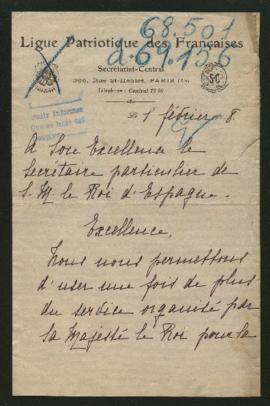 68.501
d.69.156
Ligue Patriotique des Françaises
Secrétariat-Central
Rue St-Honoré, PARIS
Téléphone : Central
1 février 8.
A Son Excellence le
Secrétaire particulier de
S. M. le Roi d'Espagne.
Excellence,
Nous nous permettons
d'user une fois de plus
du service organisé par
sa Majesté le Roi pour la